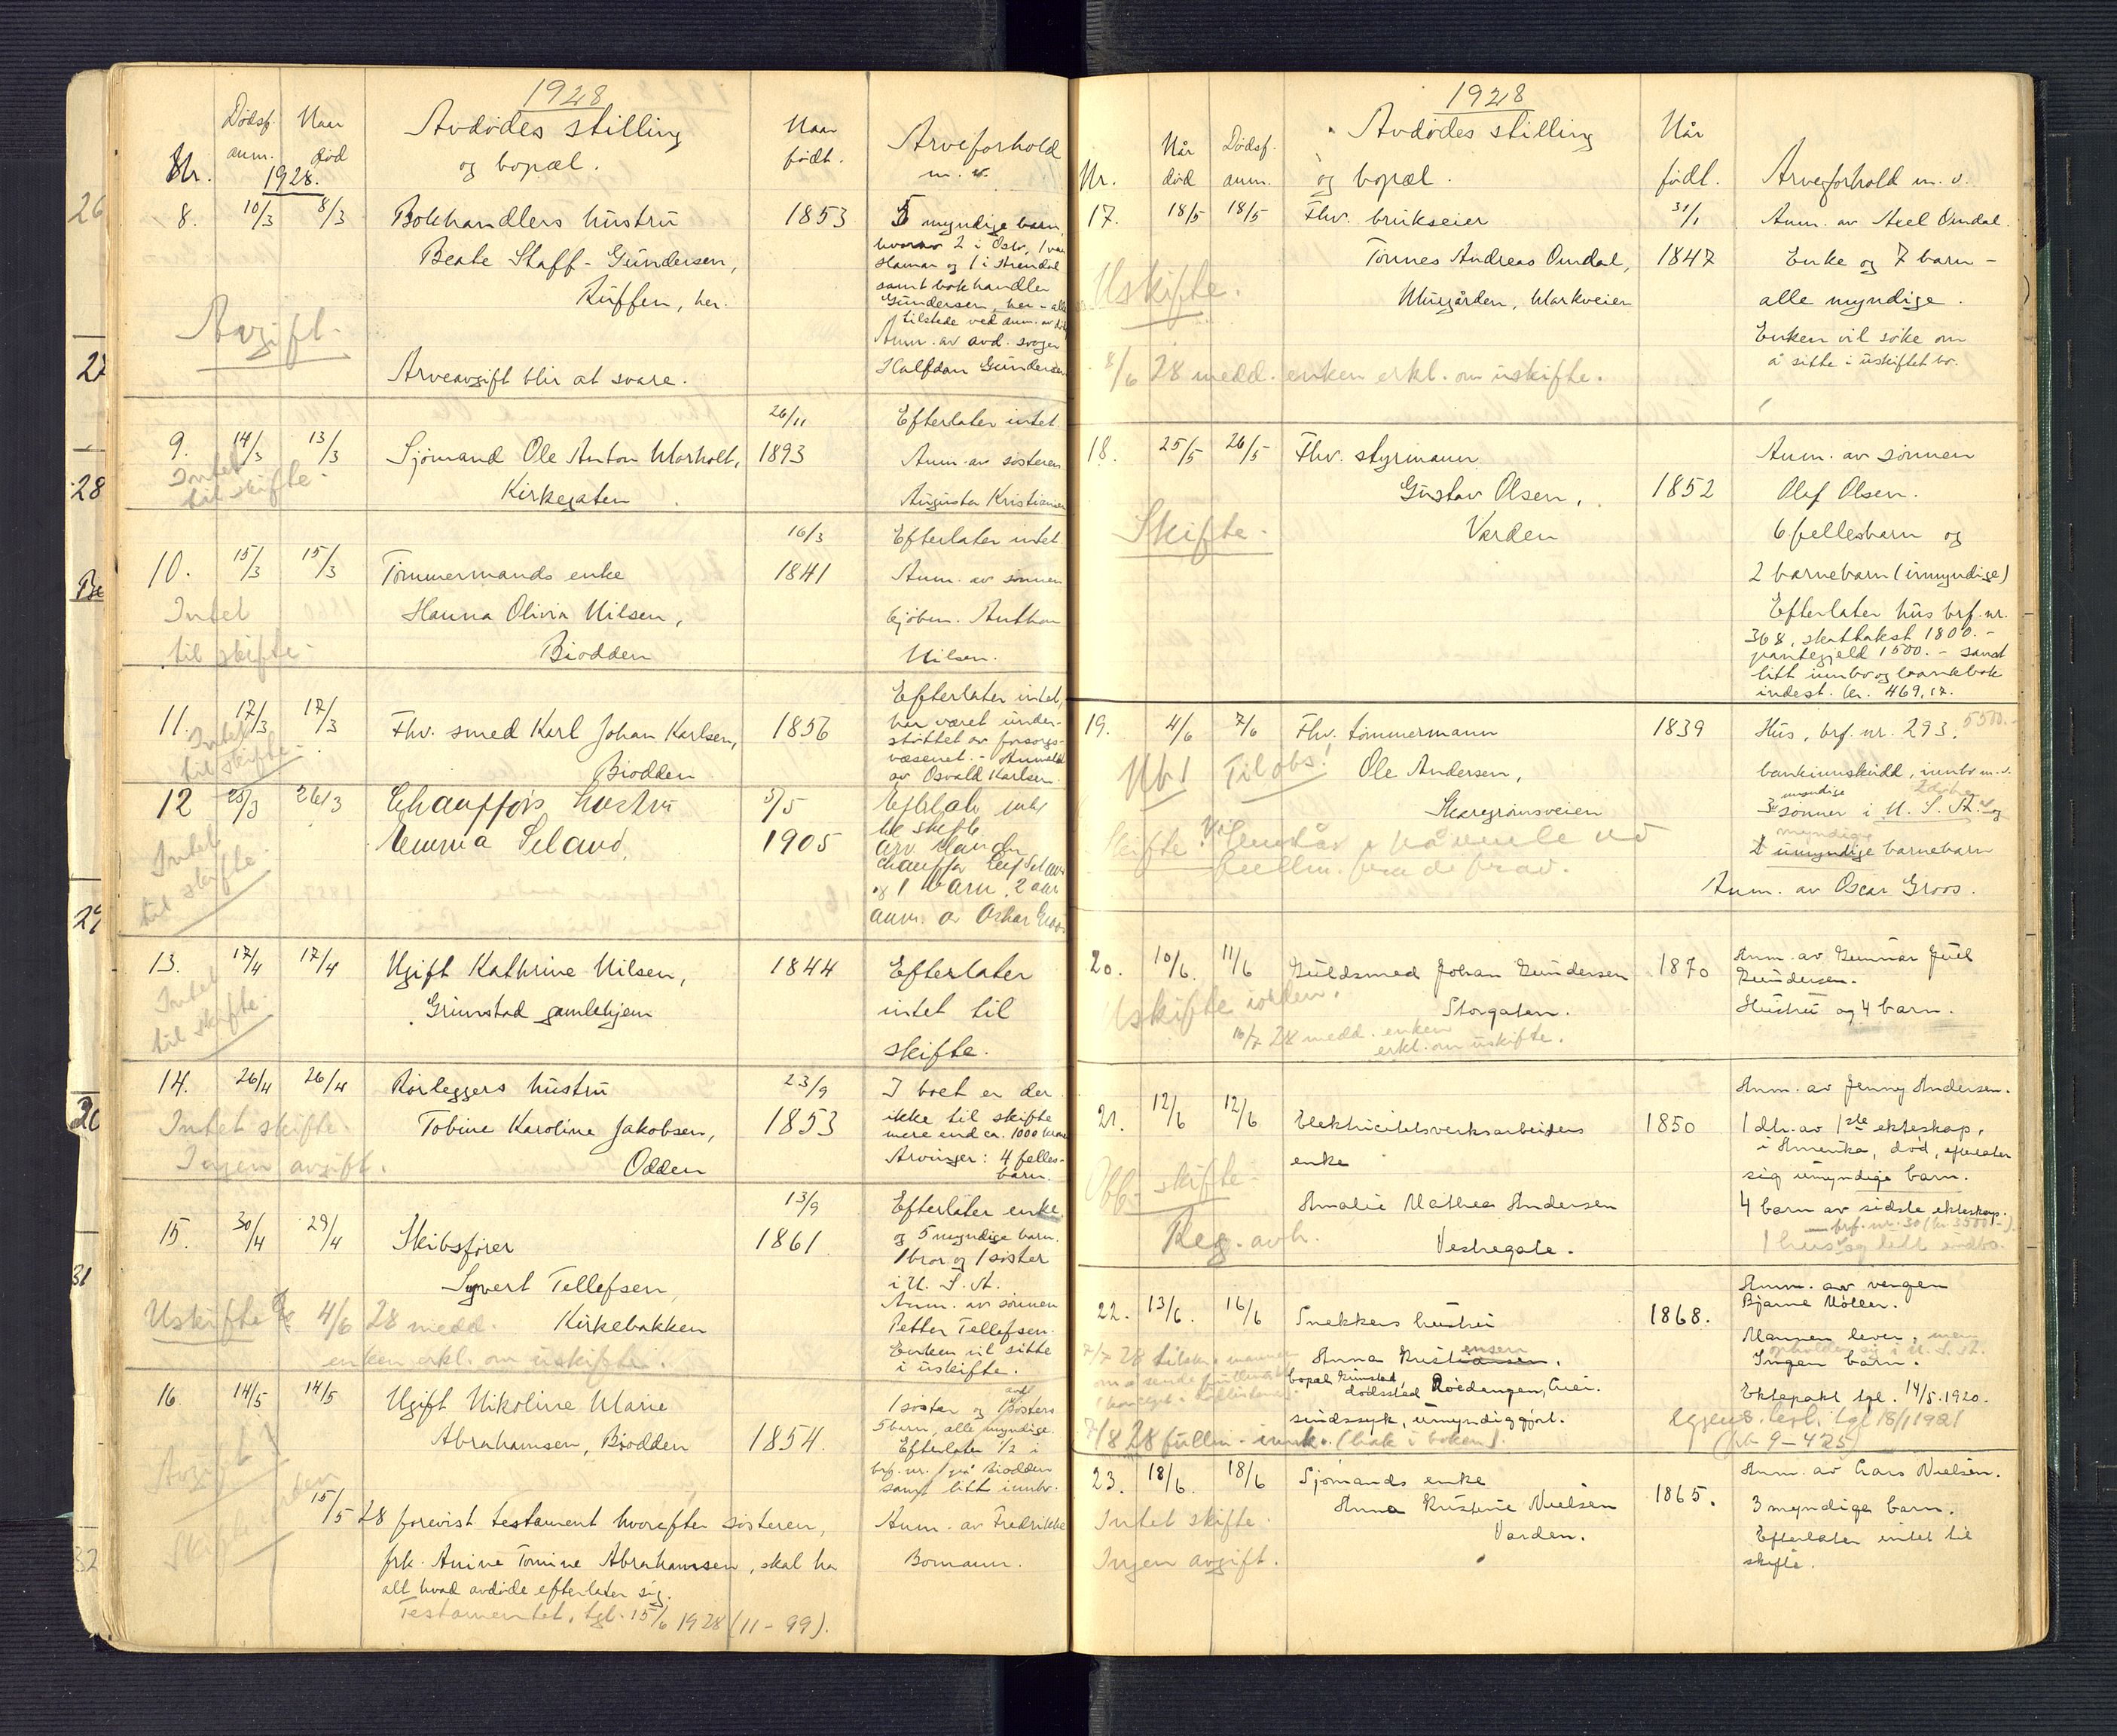 1928
Nr.
Dødsf.
anm.
Naar
død
1928.
Avdødes stilling
og bopæl.
Naar
født.
Arveforhold
m. v.
8. 10/3 8/3 Bokhandlers hustru 1853
Beate Staff-Gundersen,
her.
5 myndige barn,
hvorav 2 i Oslo, 1 ved
Hamar og 1 i Arendal
samt bokhandler
Gundersen, her - alle
tilstede ved anm. av
Anm. av avd. svoger
Halfdan Gundersen
Avgift.
Arveavgift blir at svare.
9. 14/3 13/3 Sjømand Ole Anton Marholt, 26/11 1893
Kirkegaten
Intet
til skifte.
Efterlater intet.
Anm. av søsteren
Augusta Kristiansen
10. 15/3 15/3 Tømmermands enke 16/3 1841
Hanna Olivia Nilsen,
Biodden
Intet
til skifte.
Efterlater intet
Anm. av sønnen
kjøbm. Anthon
Nilsen.
11. 17/3 17/3 Fhv. smed Karl Johan Karlsen, 1856
Biodden
Intet
til skifte.
Efterlater intet,
har været under-
støttet av forsorgs-
væsenet. - Anmeldt
av Osvald Karlsen.
12 25/3 26/3 Chaufførs hustru 5/5
Emma Seland. 1905
Intet
til skifte.
Efterlater intet
til skifte.
arv. Manden
chauffør Leif Seland
og 1 barn, 2 aar
anm. av Oskar Groos
13. 17/4 17/4 Ugift Kathrine Nilsen, 1844
Grimstad gamlehjem
Intet
til skifte.
Efterlater
intet til
skifte.
14. 26/4 26/4 Rørleggers hustru 23/9
Tobine Karoline Jakobsen, 1853
Odden
Intet skifte.
Ingen avgift.
I boet er der
ikke til skifte
mere end ca. 1000 kroner
Arvinger: 4 felles-
barn.
15. 30/4 29/4 Skibsfører 13/9 1861
Syvert Tellefsen,
Kirkebakken
Uskifte 4/6 28 medd.
enken erkl. om uskifte.
Efterlater enke
og 5 myndige barn.
1 bror og 1 søster
i U. S. A.
Anm. av sønnen
Petter Tellefsen.
Enken vil sitte
i uskifte.
16. 14/5 14/5 Ugift Nikoline Marie
Abrahamsen, Biodden 1854.
Avgift
1 søster og 1 avd. søsters
5 barn, alle myndige.
Efterlater 1/2 i
brf. nr. 1 på Biodden
samt litt innbo.
15/5 28 forevist testament hvorefter søsteren,
frk. Anine Tomine Abrahamsen, skal ha
alt hvad avdøde efterlater sig.
Testamentet, tgl. 15/6 1928 (11-99).
Anm. av Fredrikke
Bomann.
1928
Nr.
Når
død
Dødsf.
anm.
Avdødes stilling
og bopæl.
Når
født.
Arveforhold m. v.
17. 18/5 18/5 Fhv. brukseier 31/1
Tønnes Andreas Omdal, 1847
Murgården, Markveien
Uskifte.
8/6 28 medd. enken erkl. om uskifte.
Anm. av Axel Omdal.
Enke og 7 barn -
alle myndige.
Enken vil søke om
å sitte i uskiftet bo.
18. 25/5 26/5 Fhv. styrmann
Gustav Olsen, 1852
Varden
Skifte.
Anm. av sønnen
Olaf Olsen.
6 fellesbarn og
2 barnebarn (umyndige)
Efterlater hus brf. nr.
368, skattakst 1800.-
pantegjeld 1500.- samt
litt innbo og bankbok
indest. kr. 469,17.
19. 4/6 7/6 Fhv. tømmermann 1839
Ole Andersen,
Skaregrømsveien
Nb! Til obs!
Skifte.
Hus, brf. nr. 293. 5500.-
bankinnskudd, innbo m. v.
3 myndige sønner i U. S. A. og
myndige
2 umyndige barnebarn
Anm. av Oscar Groos.
20. 10/6 11/6 Guldsmed Johan Gundersen 1870
Storgaten.
Uskifte iorden.
16/7 28 medd. enken
erkl. om uskifte.
Anm. av Gunnar Juel
Gundersen.
Hustru og 4 barn.
21. 12/6 12/6 Elektricitetsverksarbeiders 1850
enke
Amalie Mathea Andersen
Vestregate.
Off. skifte.
Reg. avh.
Anm. av Jenny Andersen.
1 dtr. av 1ste ekteskap,
i Amerika, død, efterlater
sig umyndige barn.
4 barn av sidste ekteskap.
brf. nr. 30 (kr. 3500-).
1 hus og litt indbo.
22. 13/6. 16/6 Snekkers hustru 1868.
Anna Kristiansen ensen.
bopæl Grimstad,
dødssted Roedengen, Eier.
sindssyk, umyndiggjort.
7/7 28 tilskr. mannen
7/8 28 fullm. innk. (bak i boken).
Anm. av vergen
Bjarne Møller.
Mannen lever, men
opholder sig i U. S. A.
Ingen barn.
Ektepakt tgl. 14/5.1920.
tgl 18/1 1921
(pb 9-425)
23. 18/6. 18/6 Sjømands enke 1865.
Anna Kristine Nielsen
Varden.
Intet skifte.
Ingen avgift.
Anm. av Lars Nielsen.
3 myndige barn.
Efterlater intet til
skifte.
26
27
28
29
30
31
32